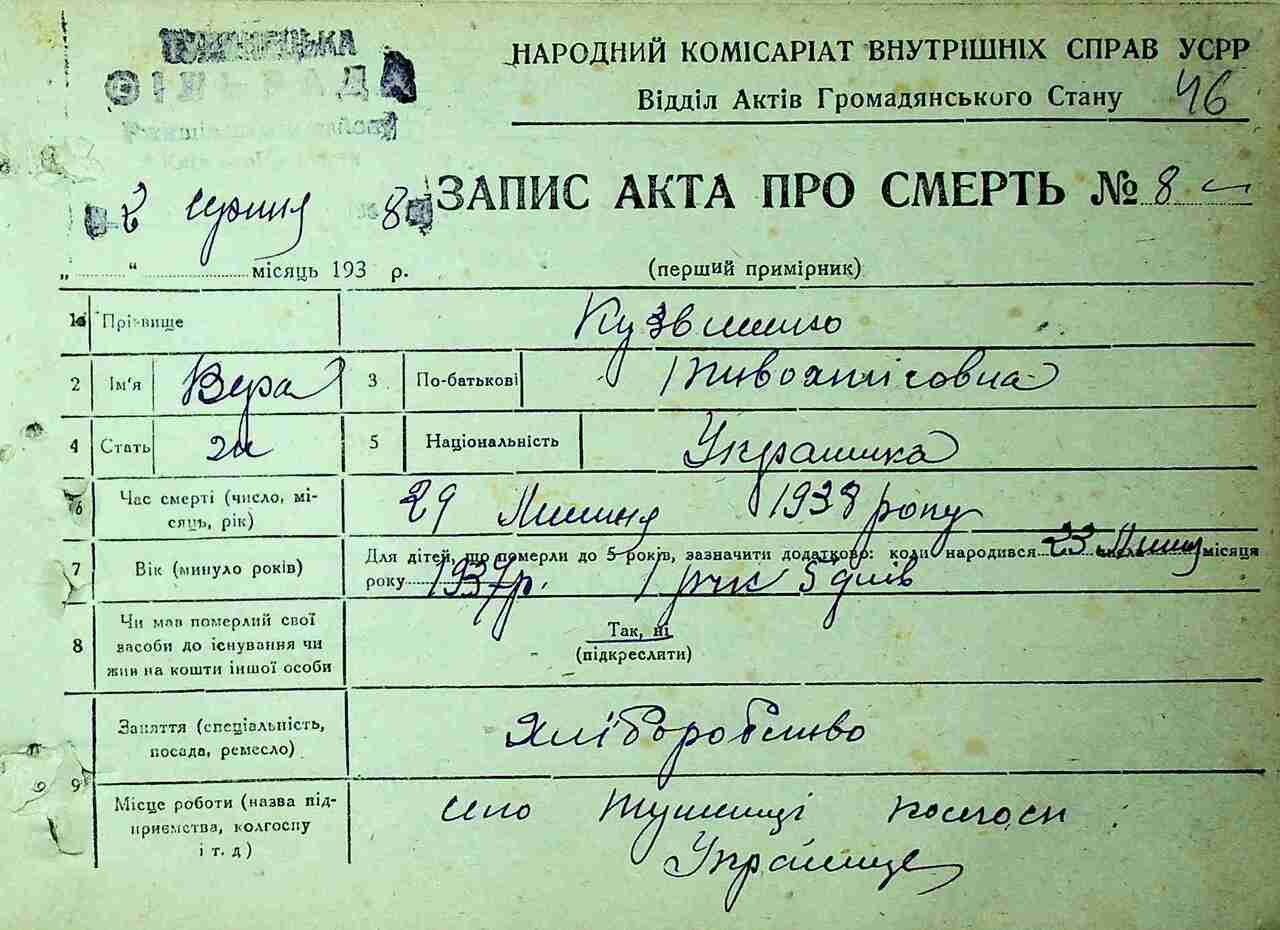 СІЛЬРАДА
НАРОДНИЙ КОМІСАРІАТ ВНУТРІШНІХ СПРАВ УСРР
Відділ Актів Громадянського Стану 46
2 серпня 8
ЗАПИС АКТА ПРО СМЕРТЬ № 8
„ “ місяць 193 р. (перший примірник)
1 Прізвище
2 Ім'я Вера 3 По-батькові
4 Стать ж 5 Національність Українка
6 Час смерті (число, мі-
сяць, рік) 29 Липня 1938 року
7 Вік (минуло років) Для дітей, що померли до 5 років, зазначити додатково: коли народився 23 числа Липня місяця
року 1937р. 1 рік 5 днів
8 Чи мав померлий свої
засоби до існування чи
жив на кошти іншої особи
Так, ні
(підкреслити)
9 Заняття (спеціальність,
посада, ремесло) Хліборобство
Місце роботи (назва під-
приємства, колгоспу
і т. д) село колгосп